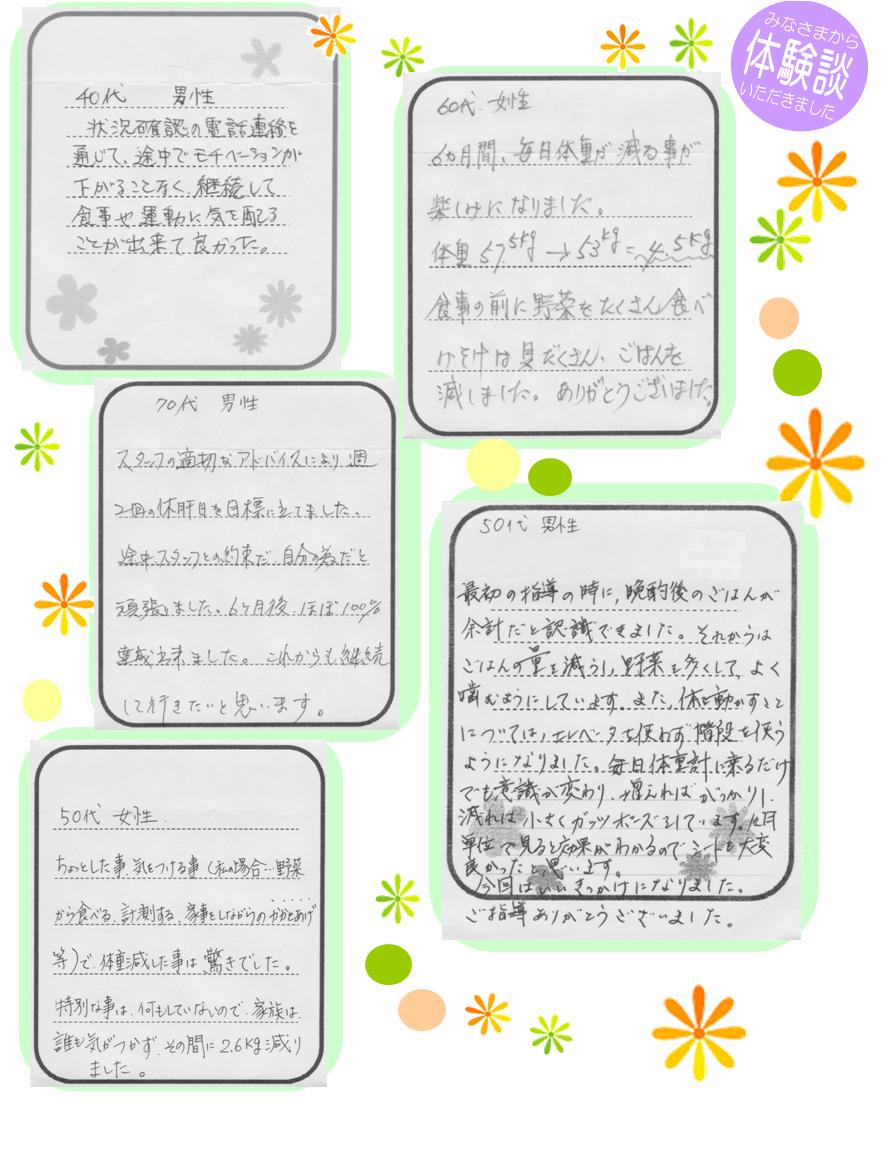 みなさまから
体験談
いただきました
40代 男性
状況確認の電話連絡を
通じて、途中でモチベーションが
下がることなく、継続して
食事や運動に気を配る
ことが出来て良かった。
60代 女性
6カ月間、毎日体重が減る事が
楽しみになりました。
体重57.5kg→53kg=4.5kg
食事の前に野菜をたくさん食べ
みそ汁は具だくさん、ごはんを
減しました。ありがとうございました。
70代 男性
スタッフの適切なアドバイスにより週
2回の休肝日を目標に立てました。
途中スタッフとの約束だ、自分の為だと
頑張りました。6ヶ月後、ほぼ100%
達成出来ました。これからも継続
して行きたいと思います。
50代 男性
最初の指導の時に、晩酌後のごはんが
余計だと認識できました。それからは
ごはんの量を減らし、野菜を多くして、よく
噛むようにしています。また、体を動かすこと
については、エレベータを使わず階段を使う
ようになりました。毎日体重計に乗るだけ
でも意識が変わり、増えればがっかりし、
減れば小さくガッツポーズしています。月
単位で見ると効果がわかるのでシートも大変
良かったと思います。
今回はいいきっかけになりました。
ご指導ありがとうございました。
50代 女性
ちょっとした事、気をつける事(私の場合…野菜
から食べる、計測する、家事をしながらのかかとあげ
等)で、体重減した事は、驚きでした。
特別な事は、何もしていないので、家族は、
誰も気がつかず、その間に2.6kg減り
ました。